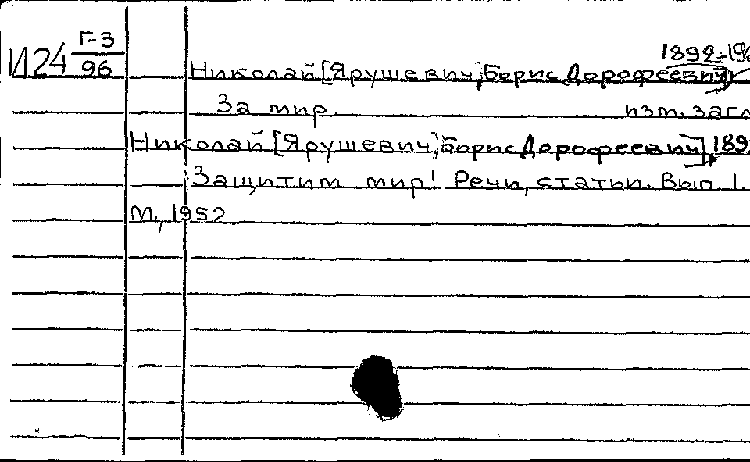 И24 Г-3/96
1892-196
Николай [Ярушевич, Борис Дорофеевич]
За мир. изм. загл
Николай [Ярушевич, Борис Дорофеевич], 189
Защитим мир! Речи, статьи. Вып 1.
М., 1952